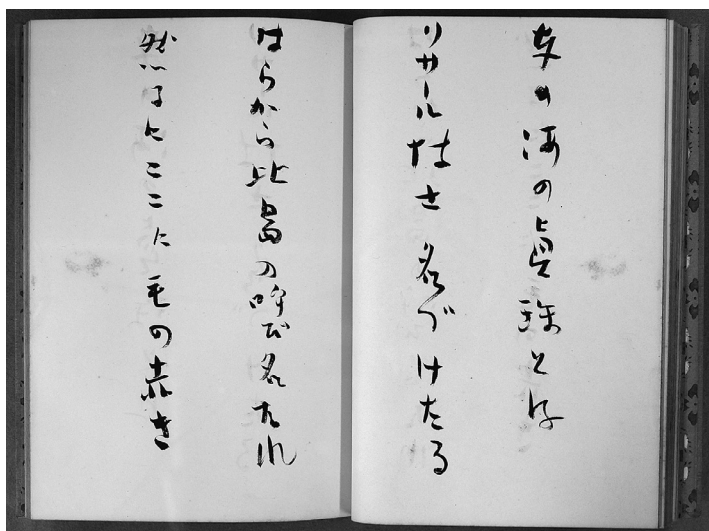 東の海の眞珠とは
リサール博士名づけたる
はらから比島の呼び名なれ
然るにここに毛の赤き